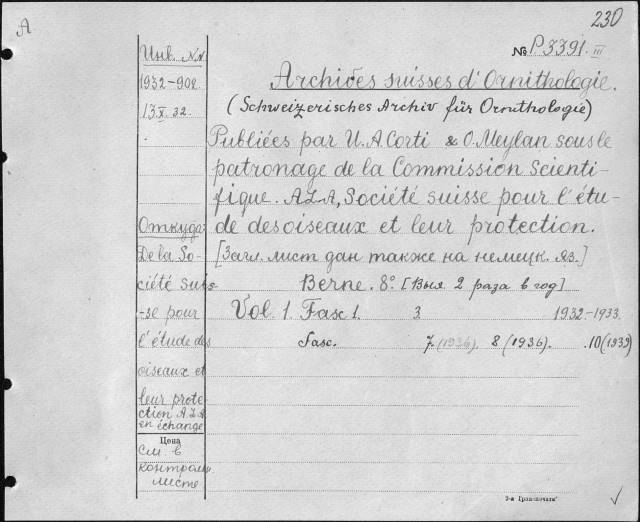 A
230
№ P.3391.III
Инв. №№
1932-902
13 X. 32.
Откуда:
De la So-
ciété suis-
-se pour
l'étude des
oiseaux et
leur prote
ction A.L.A
en échange
Цена
См. в
контрольн.
листе
Archives suisses d'Ornithologie.
(Schweizerisches Archiv für Ornithologie)
Publiées par U. A. Corti & O. Meylan sous le
patronage de la Commission Scienti-
fique. ALA, Société suisse pour l'étu-
de des oiseaux et leur protection.
[Загл. лист дан также на немецк. яз.]
Berne. 8°. [Вых. 2 раза в год]
Vol. 1. Fasc 1. 3. 1932-1933.
Fasc. 7. (1936). 8 (1936). .10(1939)